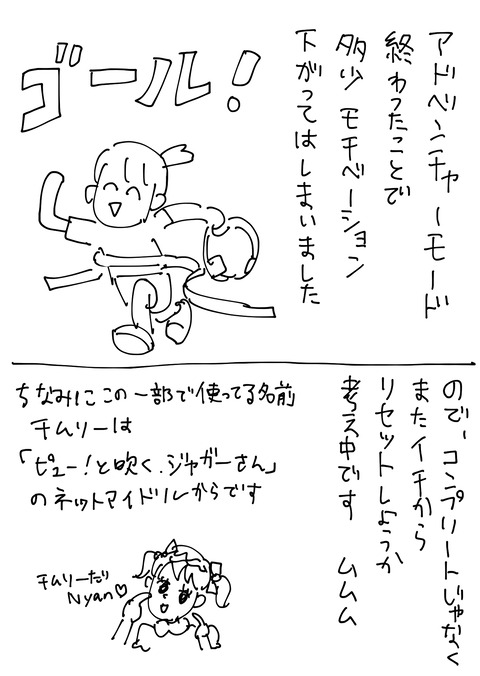 アドベンチャーモード
終わったことで
多少モチベーション
下がってはしまいました
ゴール！
ので、コンプリートじゃなく
またイチから
リセットしようか
考え中です　ムムム
ちなみにこの一部で使ってる名前
チムリーは
「ピュー！と吹く．ジャガーさん」
のネットアイドルからです
チムリーたり
Nyan♡